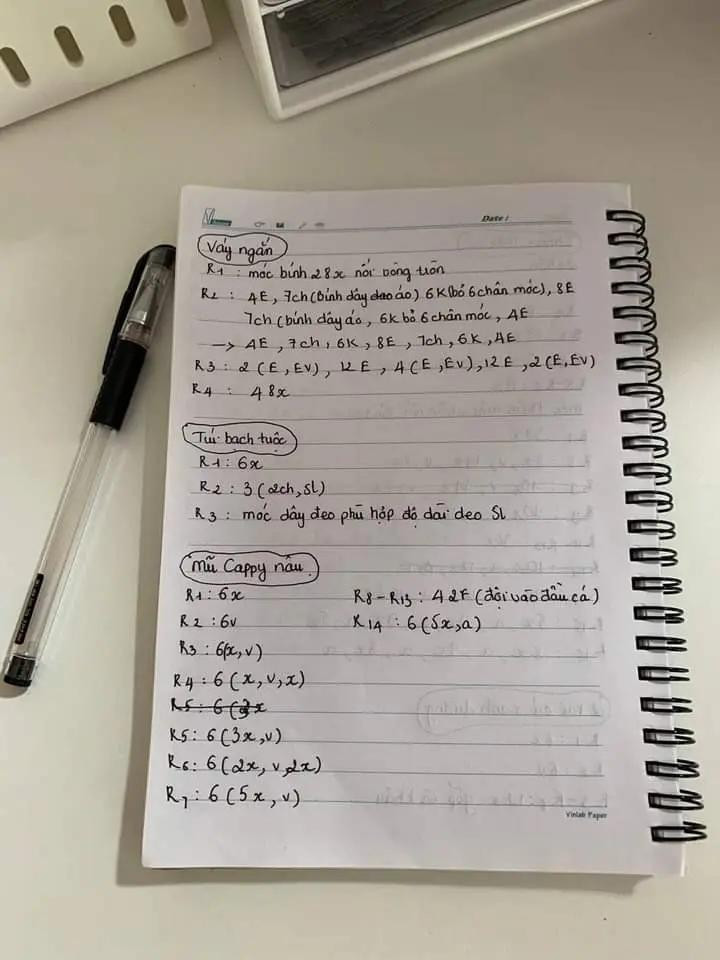 Date:
Váy ngắn
R1 : móc bính 28x nối vòng tròn
R2 : 4E, 7ch (bính dây đeo áo) 6K (bỏ 6 chân móc), 8E
7ch (bính dây áo, 6K bỏ 6 chân móc, 4E
-> 4E, 7ch, 6K, 8E, 7ch, 6K, 4E
R3 : 2 (E, EV), 12E, 4 (E, EV), 12E, 2 (E, EV)
R4 : 48x
Túi bạch tuộc
R1 : 6x
R2 : 3 (2ch, Sl)
R3 : móc dây đeo phù hợp độ dài đeo Sl
Mũ Cappy nâu
R1 : 6x
R2 : 6v
R3 : 6(x, v)
R4 : 6 (x, v, x)
R5 : 6 (3x
R5 : 6 (3x, v)
R6 : 6 (2x, v, 2x)
R7 : 6 (5x, v)
R8 - R13 : 42F (đội vào đầu cá)
R14 : 6 (5x, a)
Vinlab Paper